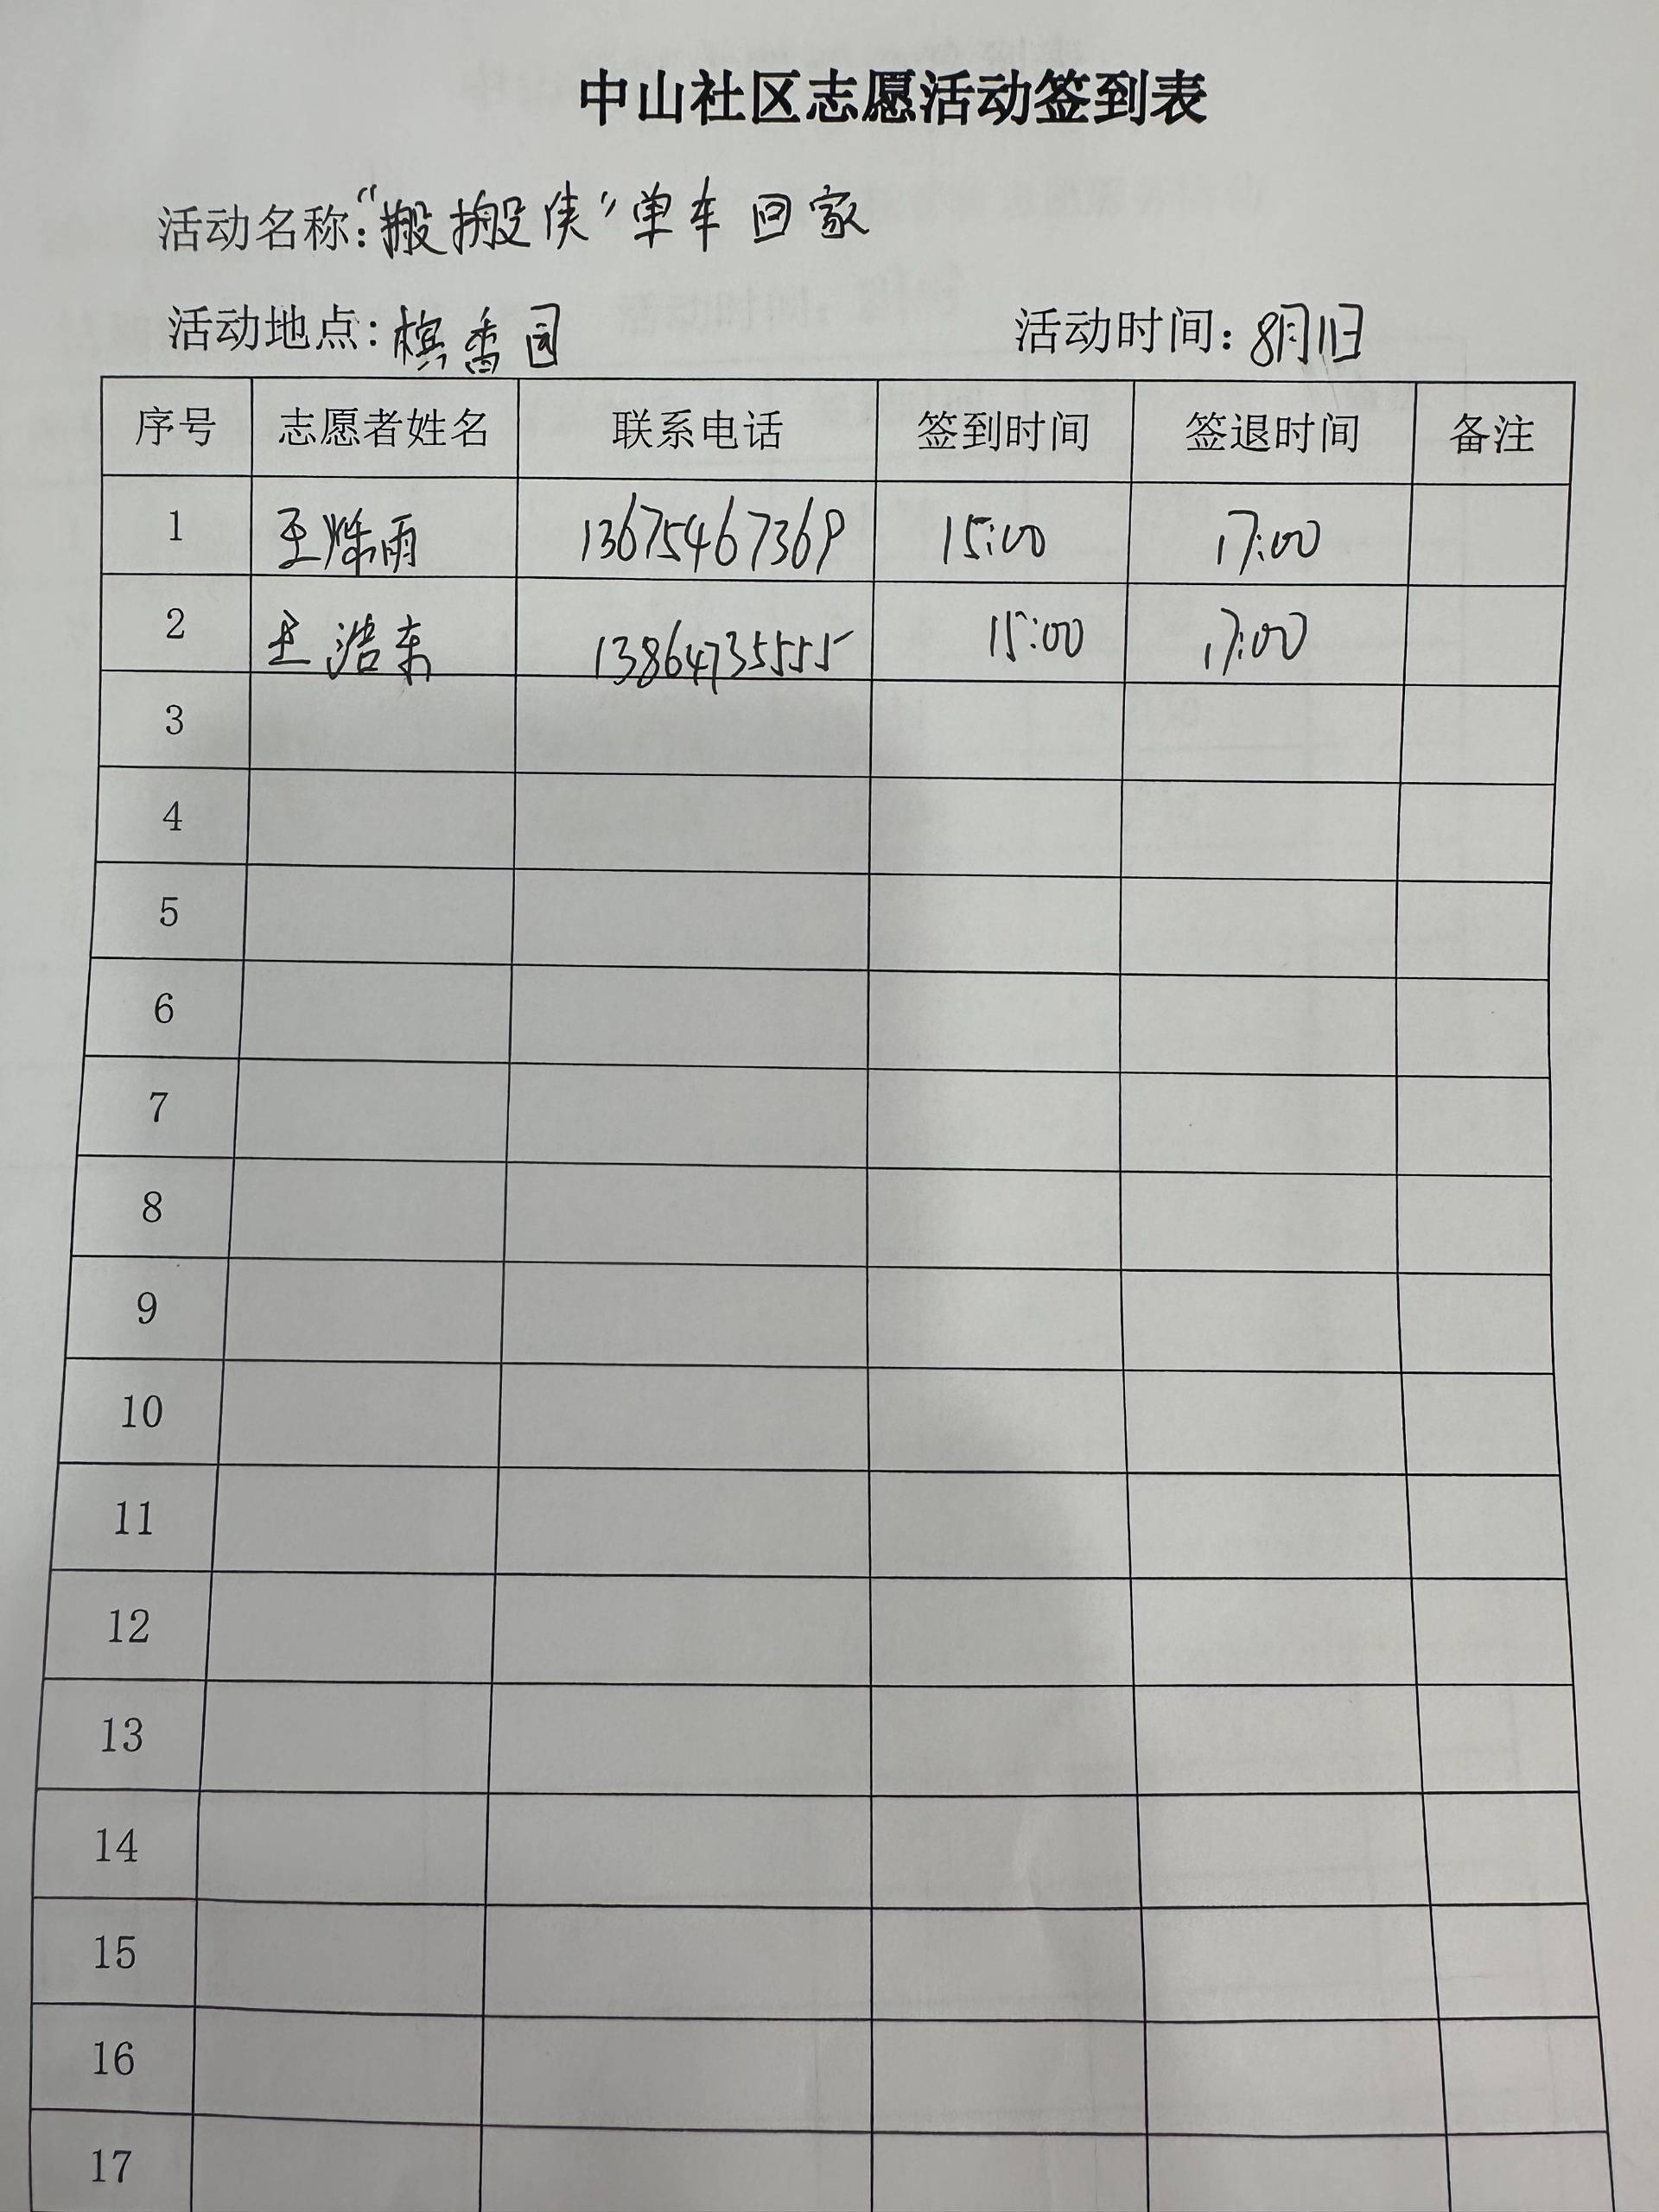 中山社区志愿活动签到表
活动名称:“搬搬侠”单车回家
活动地点:槟香园 活动时间:8月11日
序号 志愿者姓名 联系电话 签到时间 签退时间 备注
1 王烁雨 13675467369 15:00 17:00
2 王浩东 13864735555 15:00 17:00
3
4
5
6
7
8
9
10
11
12
13
14
15
16
17